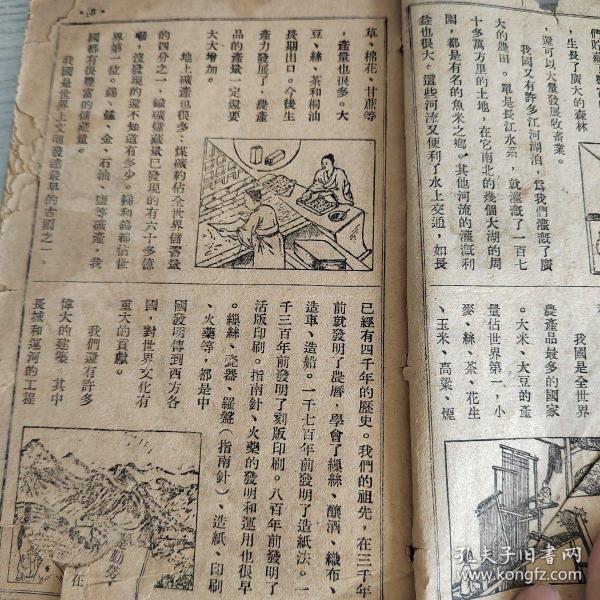 們貯藏
，生長了廣大的森林
還可以大量發展牧畜業。
我國又有許多江河湖泊，爲我們灌溉了廣
大的農田。單是長江水系，就灌溉了一百七
十多萬方里的土地，在它南北的幾個大湖的周
圍，都是有名的魚米之鄉。其他河流的灌溉利
益也很大。這些河流又便利了水上交通，如長
我國是全世界
農產品最多的國家
。大米、大豆的產
量佔世界第一，小
麥、絲、茶、花生
、玉米、高粱、煙
·3·
草、棉花、甘蔗等
，產量也很多。大
豆、絲、茶和桐油
長期出口。今後生
產力發展了，農產
品的產量一定還要
大大增加。
地上礦產也很多，煤礦約佔全世界儲蓄量
的四分之一，鐵礦儲藏量已發現的有六十多億
噸，沒發現的還不知道有多少。銻和鎢都佔世
界第一位。錫、錳、金、石油、鹽等礦產，我
國都有很豐富的儲藏量。
我國是世界上文明發達最早的古國之一、
已經有四千年的歷史。我們的祖先，在三千年
前就發明了農曆，學會了繅絲、釀酒、織布、
造車、造船。一千七百年前發明了造紙法。一
千三百年前發明了刻版印刷。八百年前發明了
活版印刷。指南針、火藥的發明和運用也很早
。繅絲、瓷器、羅盤（指南針）、造紙、印刷
、火藥等，都是中
國發明傳到西方各
國，對世界文化有
重大的貢獻。
我們還有許多
偉大的建築。其中
長城和運河的工程
勤勞
在
孔夫子旧书网
www.kongfz.com